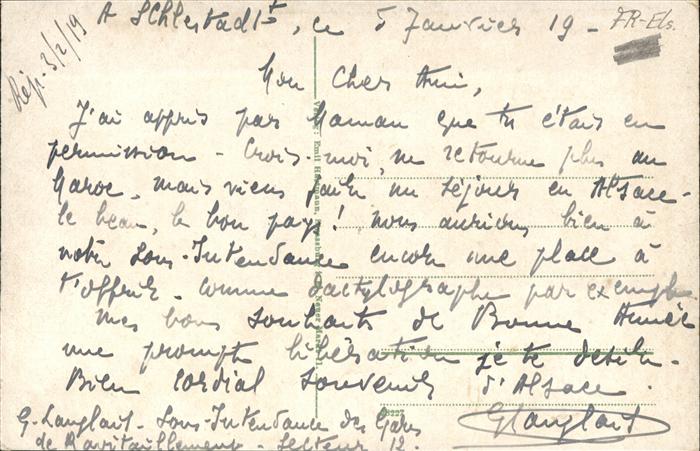 A Schlestadt, ce 5 Janvier 19-
FR-Els.
Rép. 3/2/19
Mon Cher Ami,
J'ai appris par Maman que tu étais en
permission - Crois-moi, ne retourne plus au
Maroc - mais viens faire un séjour en Alsace -
le beau, le bon pays! nous aurions bien à
notre Sous-Intendance encore une place à
t'offrir - comme dactylographe par exemple
Mes bons souhaits de Bonne Année
une prompte libération je te désire -
Bien cordial souvenir d'Alsace.
GLanglait
G. Langlait - Sous-Intendance des Gares
de Ravitaillement - Secteur 12.
Emil Hartmann, Strassburg
Neuer Markt 11.